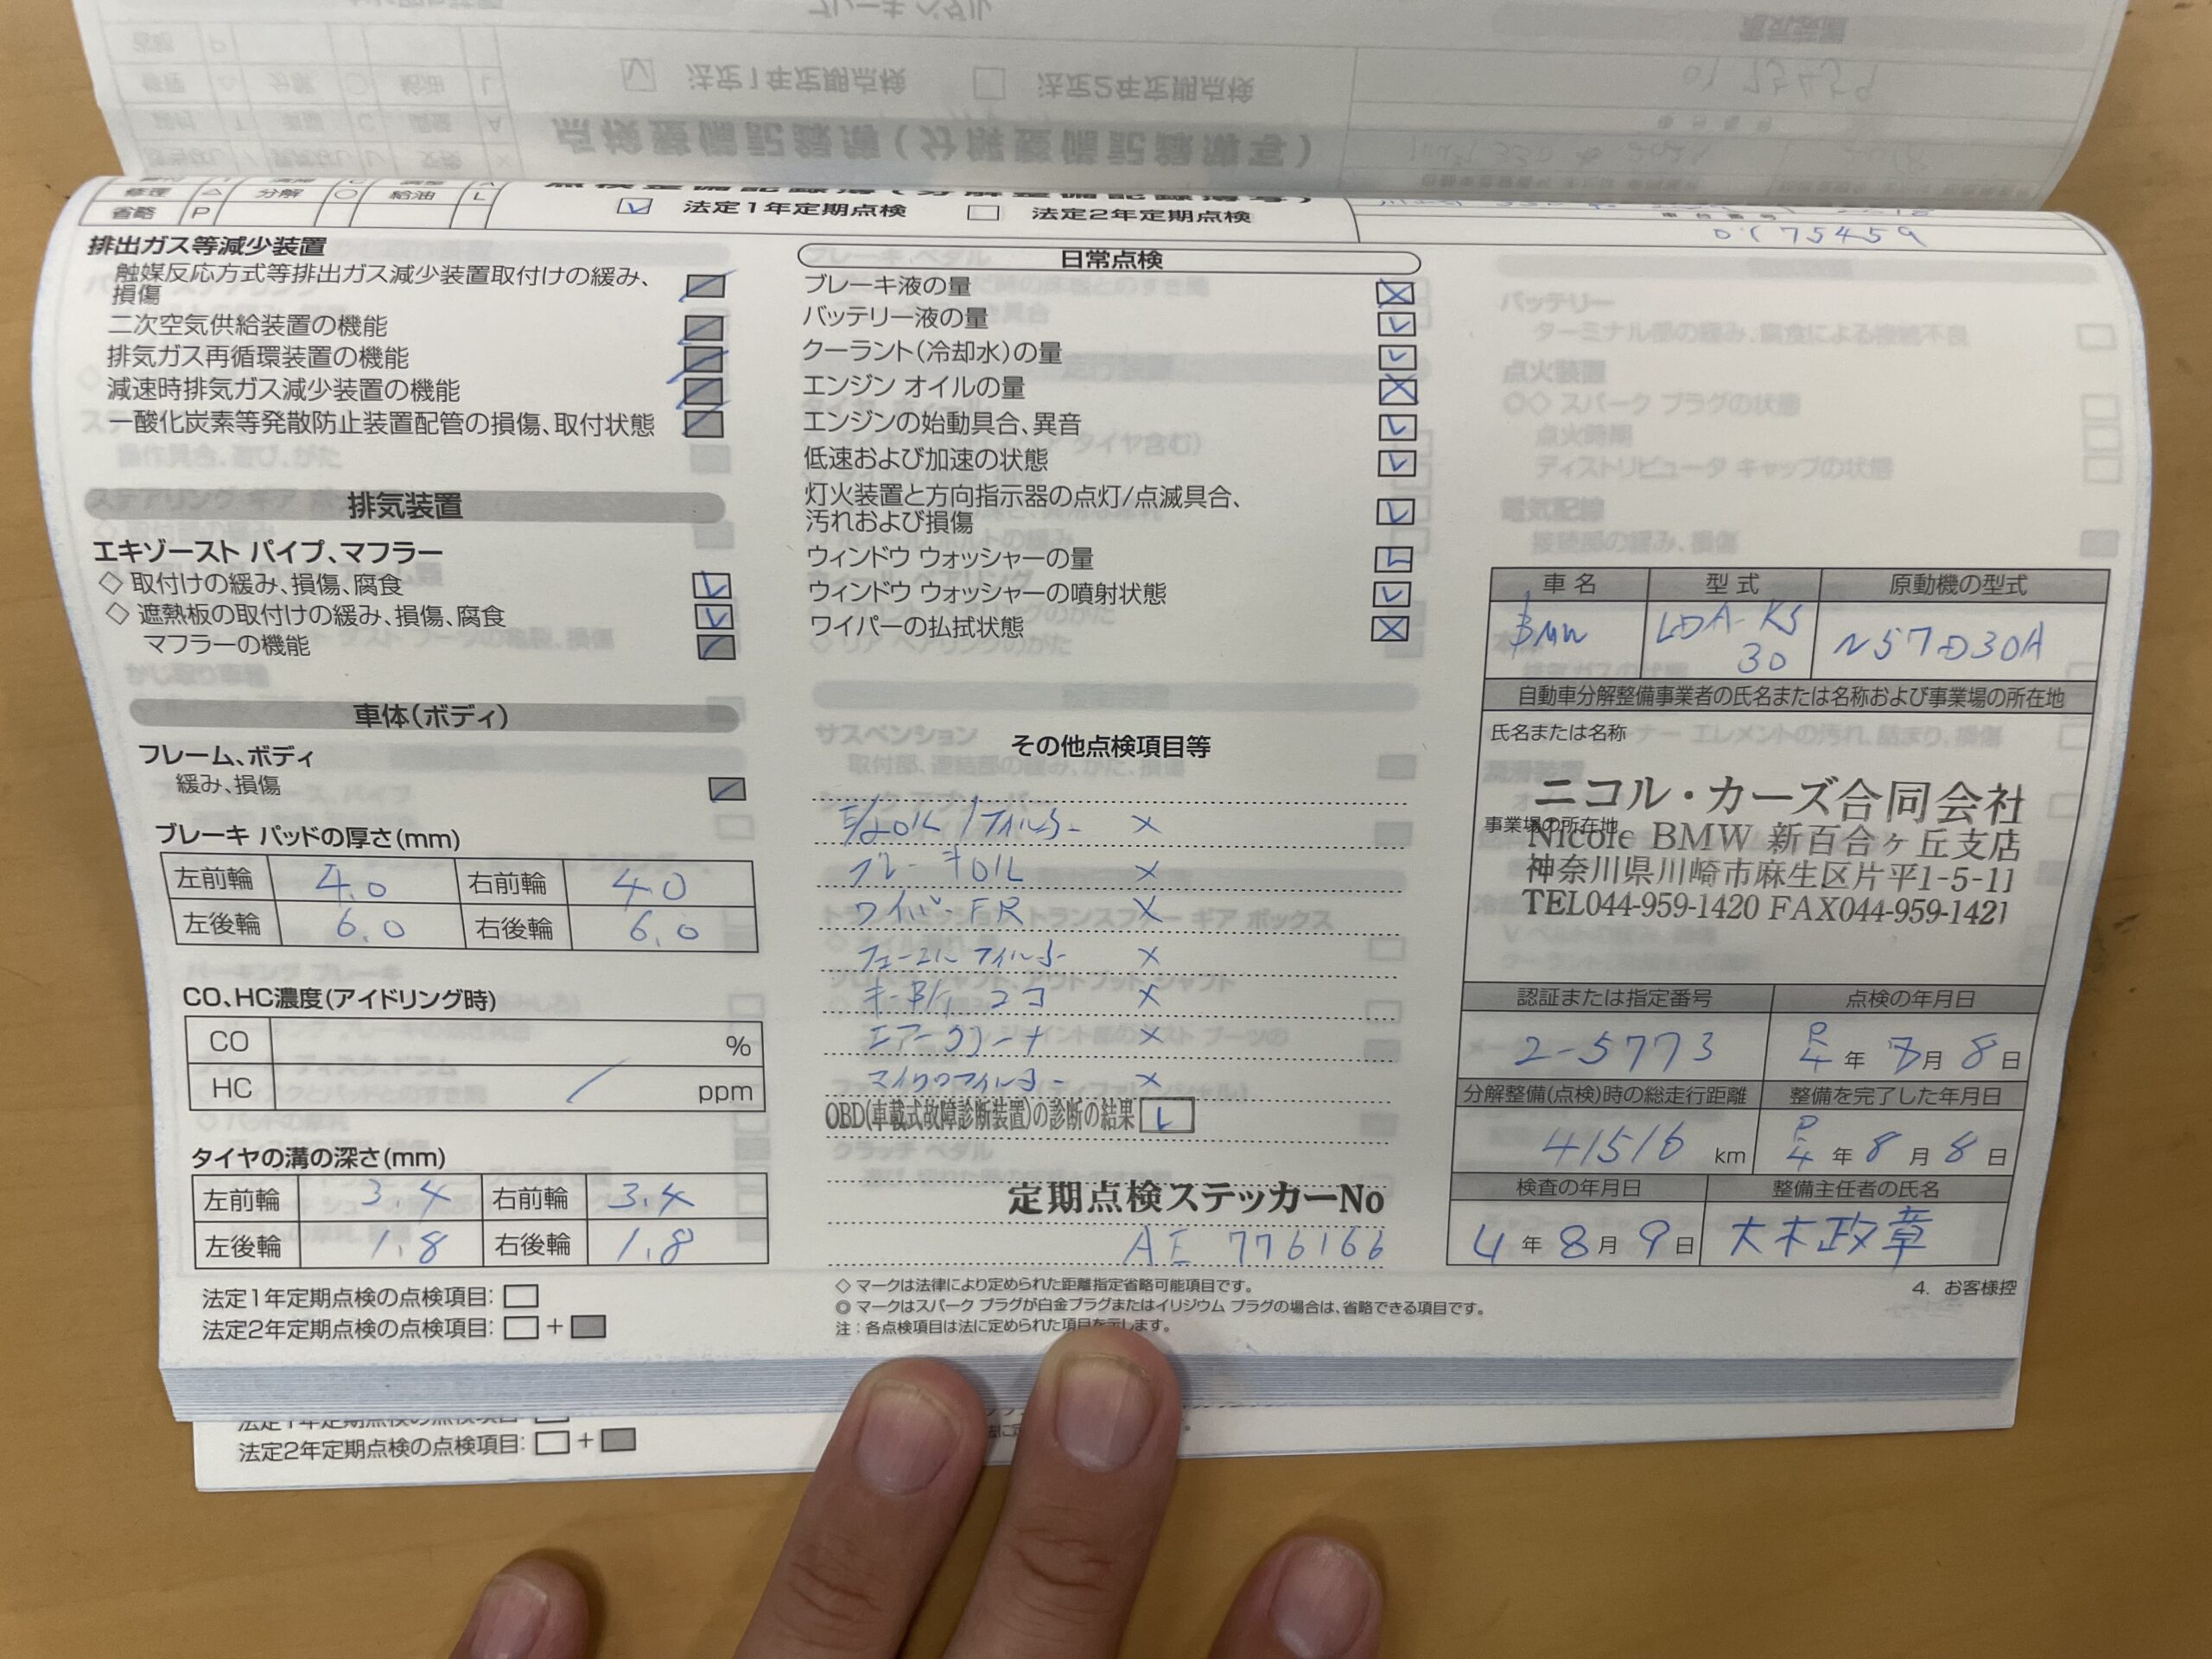 修理 △ 分解 ○ 給油 L
省略 P
点検整備記録簿(分解整備記録簿写)
法定1年定期点検 法定2年定期点検
車台番号
0C75459
排出ガス等減少装置
触媒反応方式等排出ガス減少装置取付けの緩み、
損傷
二次空気供給装置の機能
排気ガス再循環装置の機能
減速時排気ガス減少装置の機能
一酸化炭素等発散防止装置配管の損傷、取付状態
排気装置
エキゾースト パイプ、マフラー
◇ 取付けの緩み、損傷、腐食
◇ 遮熱板の取付けの緩み、損傷、腐食
マフラーの機能
車体(ボディ)
フレーム、ボディ
緩み、損傷
ブレーキ パッドの厚さ(mm)
左前輪 4.0 右前輪 4.0
左後輪 6.0 右後輪 6.0
CO、HC濃度(アイドリング時)
CO %
HC / ppm
タイヤの溝の深さ(mm)
左前輪 3.4 右前輪 3.4
左後輪 1.8 右後輪 1.8
法定1年定期点検の点検項目:
法定2年定期点検の点検項目: +
日常点検
ブレーキ液の量
バッテリー液の量
クーラント(冷却水)の量
エンジン オイルの量
エンジンの始動具合、異音
低速および加速の状態
灯火装置と方向指示器の点灯/点滅具合、
汚れおよび損傷
ウィンドウ ウォッシャーの量
ウィンドウ ウォッシャーの噴射状態
ワイパーの払拭状態
その他点検項目等
E/gOIL / フィルター ×
ブレーキOIL ×
ワイパー FR ×
フューエル フィルター ×
キーBT 2コ ×
エアークリーナ ×
マイクロフィルター ×
OBD(車載式故障診断装置)の診断の結果 レ
定期点検ステッカーNo
AE 776166
◇ マークは法律により定められた距離指定省略可能項目です。
◎ マークはスパーク プラグが白金プラグまたはイリジウム プラグの場合は、省略できる項目です。
注:各点検項目は法に定められた項目を示します。
車名 型式 原動機の型式
BMW LDA-KS30 N57D30A
自動車分解整備事業者の氏名または名称および事業場の所在地
氏名または名称
ニコル・カーズ合同会社
事業場の所在地
Nicole BMW 新百合ヶ丘支店
神奈川県川崎市麻生区片平1-5-11
TEL044-959-1420 FAX044-959-1421
認証または指定番号 点検の年月日
2-5773 R4年 8月 8日
分解整備(点検)時の総走行距離 整備を完了した年月日
41516 km R4年 8月 8日
検査の年月日 整備主任者の氏名
4年 8月 9日 大木政章
4. お客様控
法定2年定期点検の点検項目: +